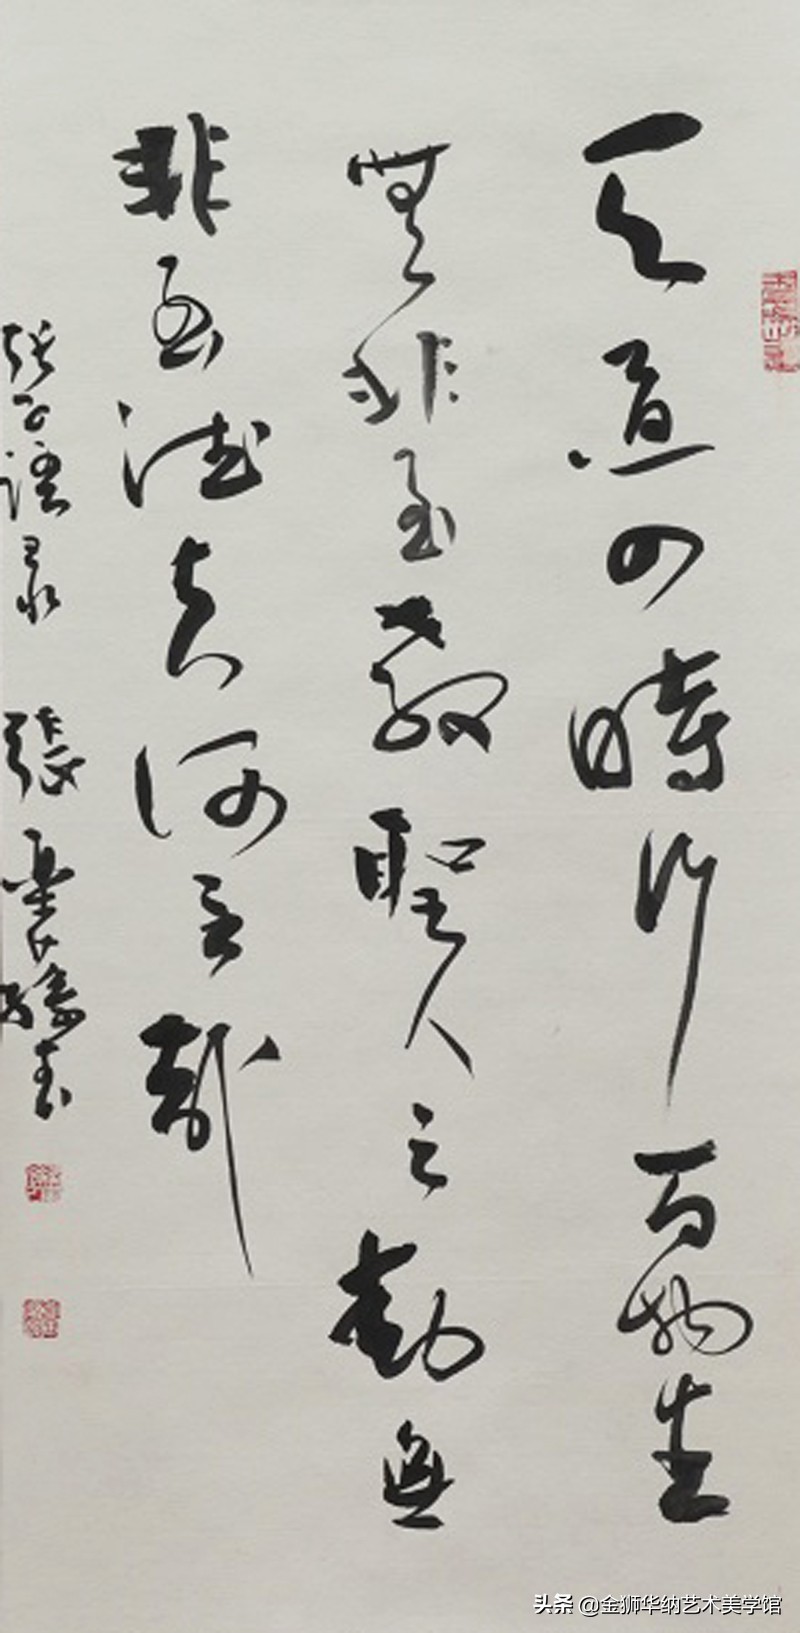 天道四時行百物生
無非至教聖人之動無
非至德夫何言哉
張子語录 張 書
头条 @金狮华纳艺术美学馆